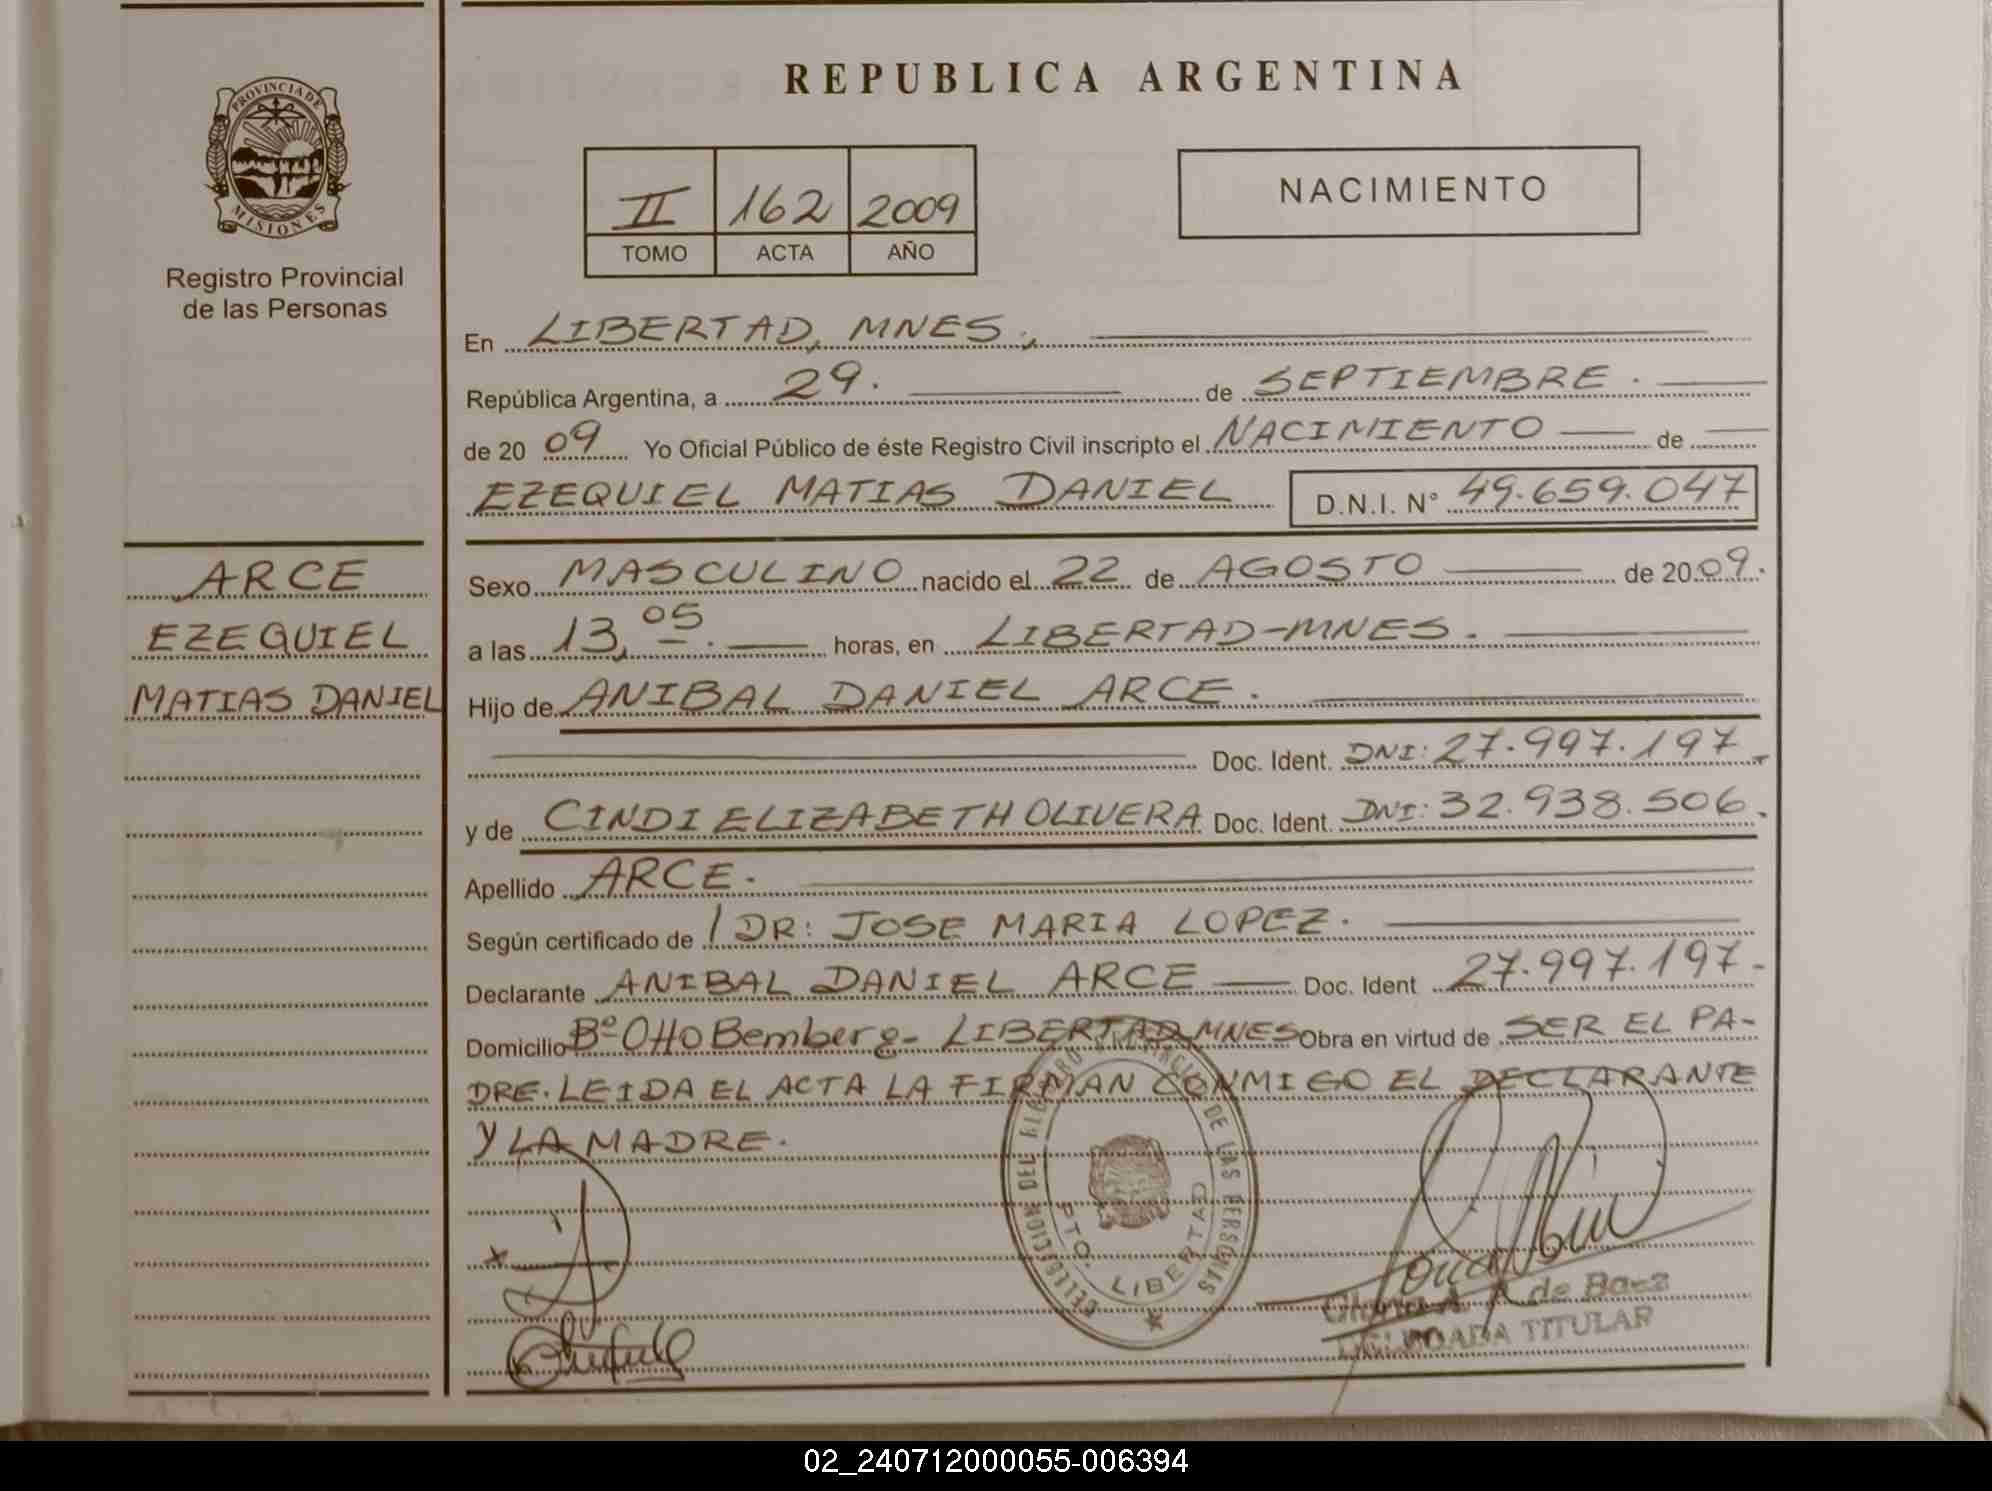 PROVINCIA DE
MISIONES
Registro Provincial
de las Personas
REPUBLICA ARGENTINA
II 162 2009
TOMO ACTA AÑO
NACIMIENTO
En LIBERTAD, MNES.,
República Argentina, a 29. de SEPTIEMBRE.
de 2009 Yo Oficial Público de éste Registro Civil inscripto el NACIMIENTO de
EZEQUIEL MATIAS DANIEL D.N.I. N° 49.659.047
ARCE
EZEQUIEL
MATIAS DANIEL
Sexo MASCULINO nacido el 22 de AGOSTO de 2009.
a las 13,05. horas, en LIBERTAD-MNES.
Hijo de ANIBAL DANIEL ARCE.
Doc. Ident. DNI: 27.997.197.
y de CINDI ELIZABETH OLIVERA Doc. Ident. DNI: 32.938.506.
Apellido ARCE.
Según certificado de / DR: JOSE MARIA LOPEZ.
Declarante ANIBAL DANIEL ARCE Doc. Ident 27.997.197.
Domicilio Bº Otto Bemberg- LIBERTAD MNES Obra en virtud de SER EL PA-
DRE. LEIDA EL ACTA LA FIRMAN CONMIGO EL DECLARANTE
Y LA MADRE.
DE LAS PERSONAS
PTO. LIBERTAD
de Baez
TITULAR
02_240712000055-006394